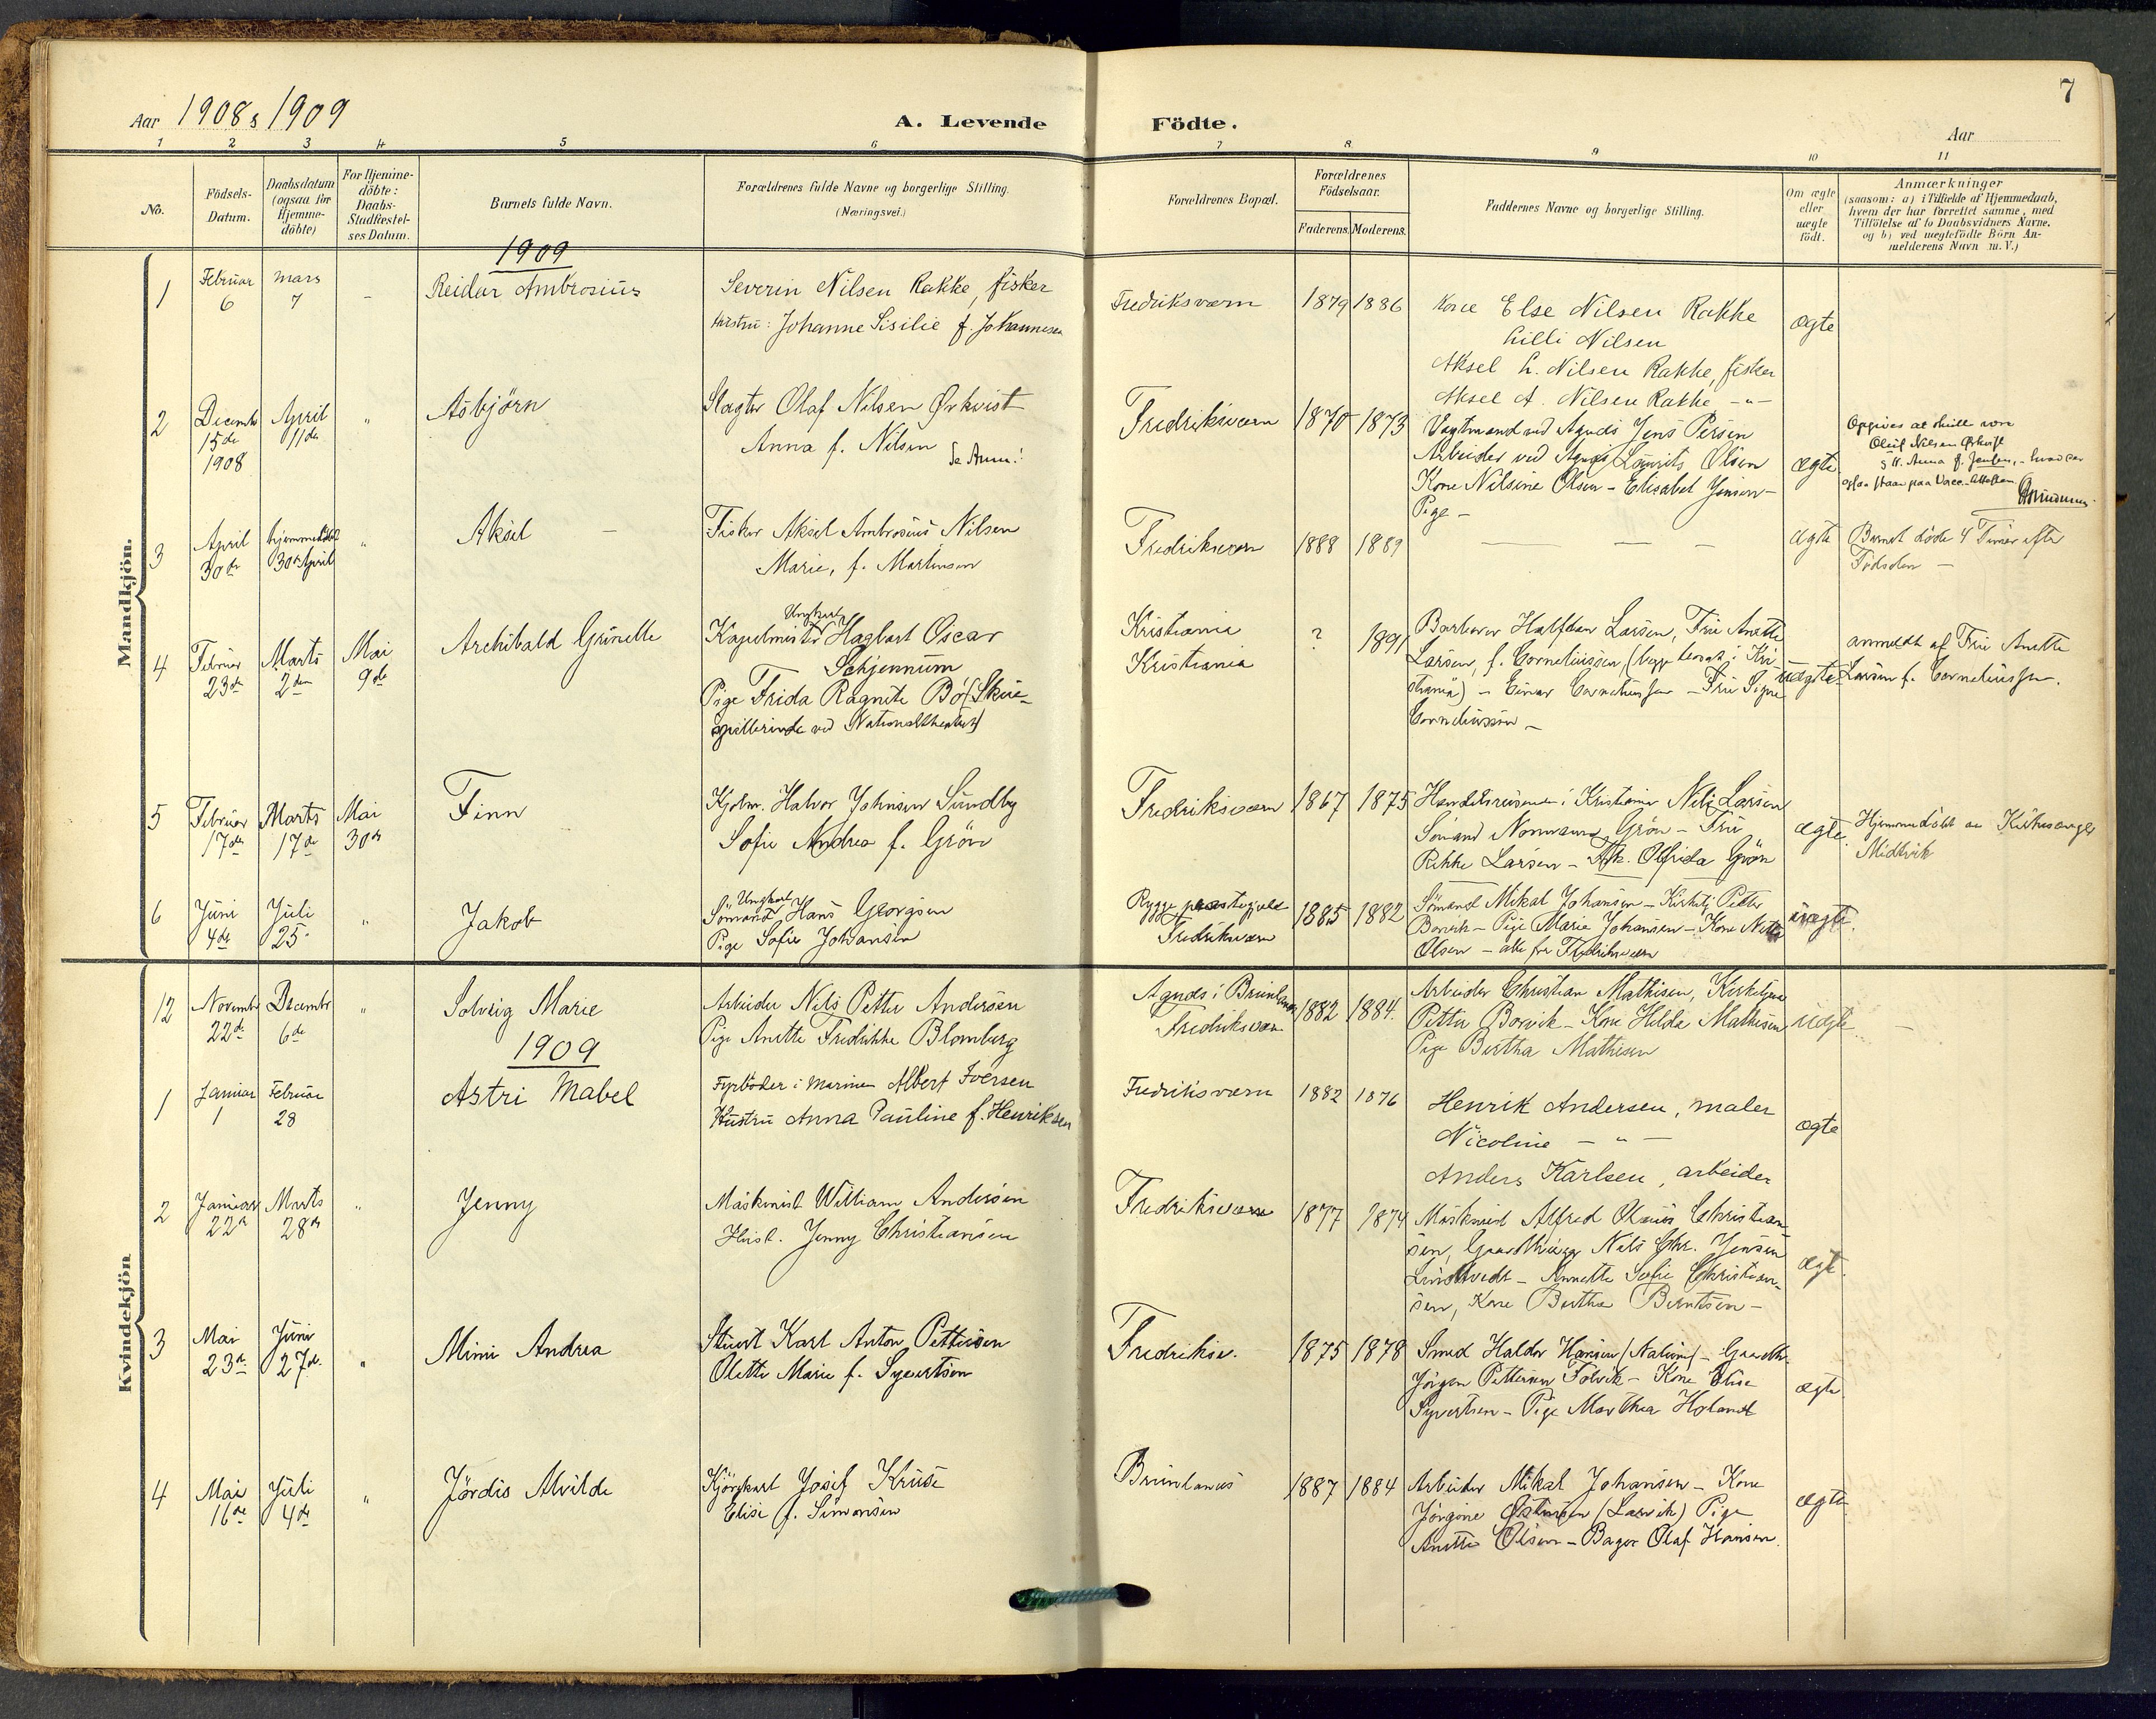 7
Aar 1908 & 1909
A. Levende Födte.
Aar
1 2 3 4 5 6 7 8 9 10 11
No.
Födsels-
Datum.
Daabsdatum
(ogsaa for
Hjemme-
döbte)
For Hjemme-
döbte:
Daabs-
Stadfæstel-
ses Datum.
Barnets fulde Navn.
Forældrenes fulde Navne og borgerlige Stilling.
(Næringsvei.)
Forældrenes Bopæl.
Forældrenes
Födselsaar.
Faderens. Moderens.
Faddernes Navne og borgerlige Stilling.
Om ægte
eller
uægte
födt.
Anmærkninger
(saasom: a) i Tilfælde af Hjemmedaab,
hvem der har forrettet samme, med
Tilföielse af to Daabsvidners Navne.
og b) ved uægtefödte Börn An-
melderens Navn m.V.)
Mandkjön.
1909
1
Februar
6
mars
7
Reidar Ambrosius
Severin Nilsen Rakke, fisker
Hustru: Johanne Sisilie f. Johannesen
Fredriksværn
1879 1886
Kone Else Nilsen Rakke
Lilli Nilsen
Aksel L. Nilsen Rakke, fisker
Aksel A. Nilsen Rakke - " -
ægte
2
Decembr
15de
1908
April
11de
"
Asbjörn
Slagter Olaf Nilsen Ørkvist
Anna f. Nilsen Se Anm!
Fredriksværn
1870 1873
Vagtmand ved Agnæs Jens Persen
Arbeider ved Agnæs Laurits Olsen
Kone Nilsine Olsen - Elisabet Jensen -
Pige -
ægte
Opgives at skulle være
Oluf Nilsen Ørkvist
& H. Anna f. Jensen, - hvad der
ogsaa staar paa Vacc.-Attesten
3
April
30de
hjemmedöbt
30de April
"
Aksel -
Fisker Aksel Ambrosius Nilsen
Marie, f. Martinsen
Fredriksværn
1888 1889
ægte
Barnet döde 4 Timer efter
Födselen -
4
Februar
23de
Marts
2den
Mai
9de
Archibald Grünelle
Ungkarl
Kapelmester Hagbart Oscar
Schjennum
Pige Frida Ragnite Bö (Skue-
spillerinde ved Nationaltheatret)
Kristiania
Kristiania
? 1891
Barberer Halfdan Larsen, Fru Anette
Larsen, f. Corneliussen (begge bosat i Kri-
stiania) - Einar Corneliussen - Fru Signe
Corneliussen -
uægte
anmeldt af Fru Anette
Larsen f. Corneliussen.
5
Februar
17de
Marts
17de
Mai
30de
Finn
Kjøbm. Halvor Johnsen Sundby
Sofie Andrea f. Grön
Fredriksværn
1867 1875
Handelsreisende i Kristiania Nils Larsen
Sömand Normann Grön - Fru
Rikke Larsen - Frk. Olfrida Grön
ægte.
Hjemmedöbt av Kirkesanger
Midtvik
6
Juni
4de
Juli
25
"
Jakob
Ungkarl
Sömand Hans Georgsen
Pige Sofie Johansen
Rygge præstegjeld
Fredriksværn
1885 1882
Sömand Mikal Johansen - Kirketj. Petter
Borvik - Pige Marie Johansen - Kone Nette
Olsen - alle fra Fredriksværn
uægte.
Kvindekjön
12
Novembr
22de
Decembr
6de
"
Solveig Marie
Arbeider Nils Petter Andersen
Pige Anette Fredrikke Blomberg
Agnæs i Brunlanæs
Fredriksværn
1882 1884.
Arbeider Christian Mathisen, Kirketjener
Petter Borvik - Kone Hilda Mathisen
Pige Bertha Mathisen
uægte
1909
1
Januar
1
Februar
28
Astri Mabel
Fyrböder i Marinen Albert Iversen
Hustru Anna Pauline f. Henriksen
Fredriksværn
1882 1876
Henrik Andersen, maler
Nicoline - " -
Anders Karlsen, arbeider
ægte
2
Januar
22de
Marts
28de
"
Jenny
Maskinist William Andersen
Hust. Jenny Christiansen
Fredriksværn
1877 1874
Maskinist Alfred Olaus Christian-
sen, Gaardbruger Nils Chr. Jensen
Lindtvedt - Annette Sofie Christian-
sen, Kone Bertha Berntsen -
ægte.
3
Mai
23de
Juni
27de
"
Mimi Andrea
Stuert Karl Anton Pettersen
Olette Marie f. Syvertsen
Fredriksv.
1875 1878
Smed Haldor Hansen (Nalum) - Gaardbr.
Jörgen Pettersen Folvik - Kone Elise
Syvertsen - Pige Marthea Holand
ægte.
4
Mai
16de
Juli
4de
"
Jördis Alvilde
Kjörekarl Josef Kruse
Elise f. Simonsen
Brunlanæs
1887 1884
Arbeider Mikal Johansen - Kone
Jörgine Østensen (Larvik) Pige
Anette Olsen - Bager Olaf Hansen.
ægte